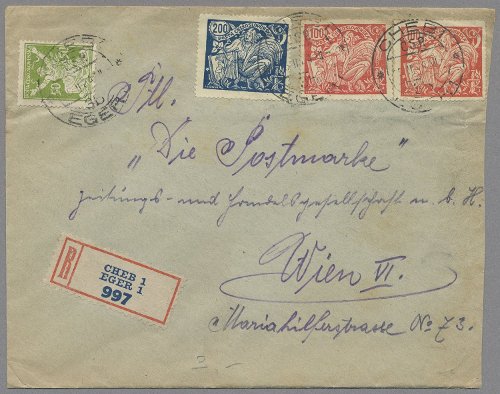 CHEB
EGER
200
100
P. Tit.
"Die Postmarke"
Zeitungs- und Handelsgesellschaft m. b. H.
Wien VI.
Mariahilferstrasse No 73.
R
CHEB 1
EGER 1
997